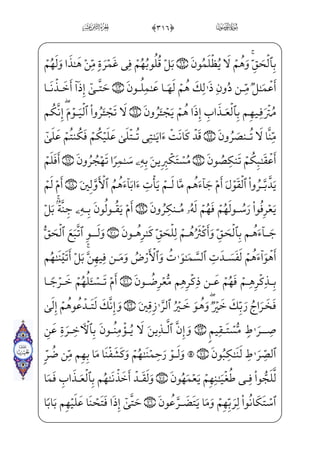 ﴿٣١٦﴾
بِٱلْحَقِّ ۚ وَهُمْ لَا يُظْلَمُونَ ٦٢ بَلْ قُلُوبُهُمْ فِى غَمْرَةٍ مِّنْ هَـٰذَا وَلَهُمْ
أَعْمَـٰلٌ مِّن دُونِ ذَٰلِكَ هُمْ لَهَا عَـٰمِلُونَ ٦٣ حَتَّىٰٓ إِذَآ أَخَذْنَا
مُتْرَفِيهِم بِٱلْعَذَابِ إِذَا هُمْ يَجْـَٔرُونَ ٦٤ لَا تَجْـَٔرُوا۟ ٱلْيَوْمَ ۖ إِنَّكُم
مِّنَّا لَا تُنصَرُونَ ٦٥ قَدْ كَانَتْ ءَايَـٰتِى تُتْلَىٰ عَلَيْكُمْ فَكُنتُمْ عَلَىٰٓ
أَعْقَـٰبِكُمْ تَنكِصُونَ ٦٦ مُسْتَكْبِرِينَ بِهِۦ سَـٰمِرًا تَهْجُرُونَ ٦٧ أَفَلَمْ
يَدَّبَّرُوا۟ ٱلْقَوْلَ أَمْ جَآءَهُم مَّا لَمْ يَأْتِ ءَابَآءَهُمُ ٱلْأَوَّلِينَ ٦٨ أَمْ لَمْ
يَعْرِفُوا۟ رَسُولَهُمْ فَهُمْ لَهُۥ مُنكِرُونَ ٦٩ أَمْ يَقُولُونَ بِهِۦ جِنَّةٌۢ ۚ بَلْ
جَآءَهُم بِٱلْحَقِّ وَأَكْثَرُهُمْ لِلْحَقِّ كَـٰرِهُونَ ٧٠ وَلَوِ ٱتَّبَعَ ٱلْحَقُّ
أَهْوَآءَهُمْ لَفَسَدَتِ ٱلسَّمَـٰوَٰتُ وَٱلْأَرْضُ وَمَن فِيهِنَّ ۚ بَلْ أَتَيْنَـٰهُم
بِذِكْرِهِمْ فَهُمْ عَن ذِكْرِهِم مُّعْرِضُونَ ٧١ أَمْ تَسْـَٔلُهُمْ خَرْجًا
فَخَرَاجُ رَبِّكَ خَيْرٌ ۖ وَهُوَ خَيْرُ ٱلرَّٰزِقِينَ ٧٢ وَإِنَّكَ لَتَدْعُوهُمْ إِلَىٰ
صِرَٰطٍ مُّسْتَقِيمٍ ٧٣ وَإِنَّ ٱلَّذِينَ لَا يُؤْمِنُونَ بِٱلْـَٔاخِرَةِ عَنِ
ٱلصِّرَٰطِ لَنَـٰكِبُونَ ٧٤ ۞ وَلَوْ رَحِمْنَـٰهُمْ وَكَشَفْنَا مَا بِهِم مِّن ضُرٍّ
لَّلَجُّوا۟ فِى طُغْيَـٰنِهِمْ يَعْمَهُونَ ٧٥ وَلَقَدْ أَخَذْنَـٰهُم بِٱلْعَذَابِ فَمَا
ٱسْتَكَانُوا۟ لِرَبِّهِمْ وَمَا يَتَضَرَّعُونَ ٧٦ حَتَّىٰٓ إِذَا فَتَحْنَا عَلَيْهِم بَابًا